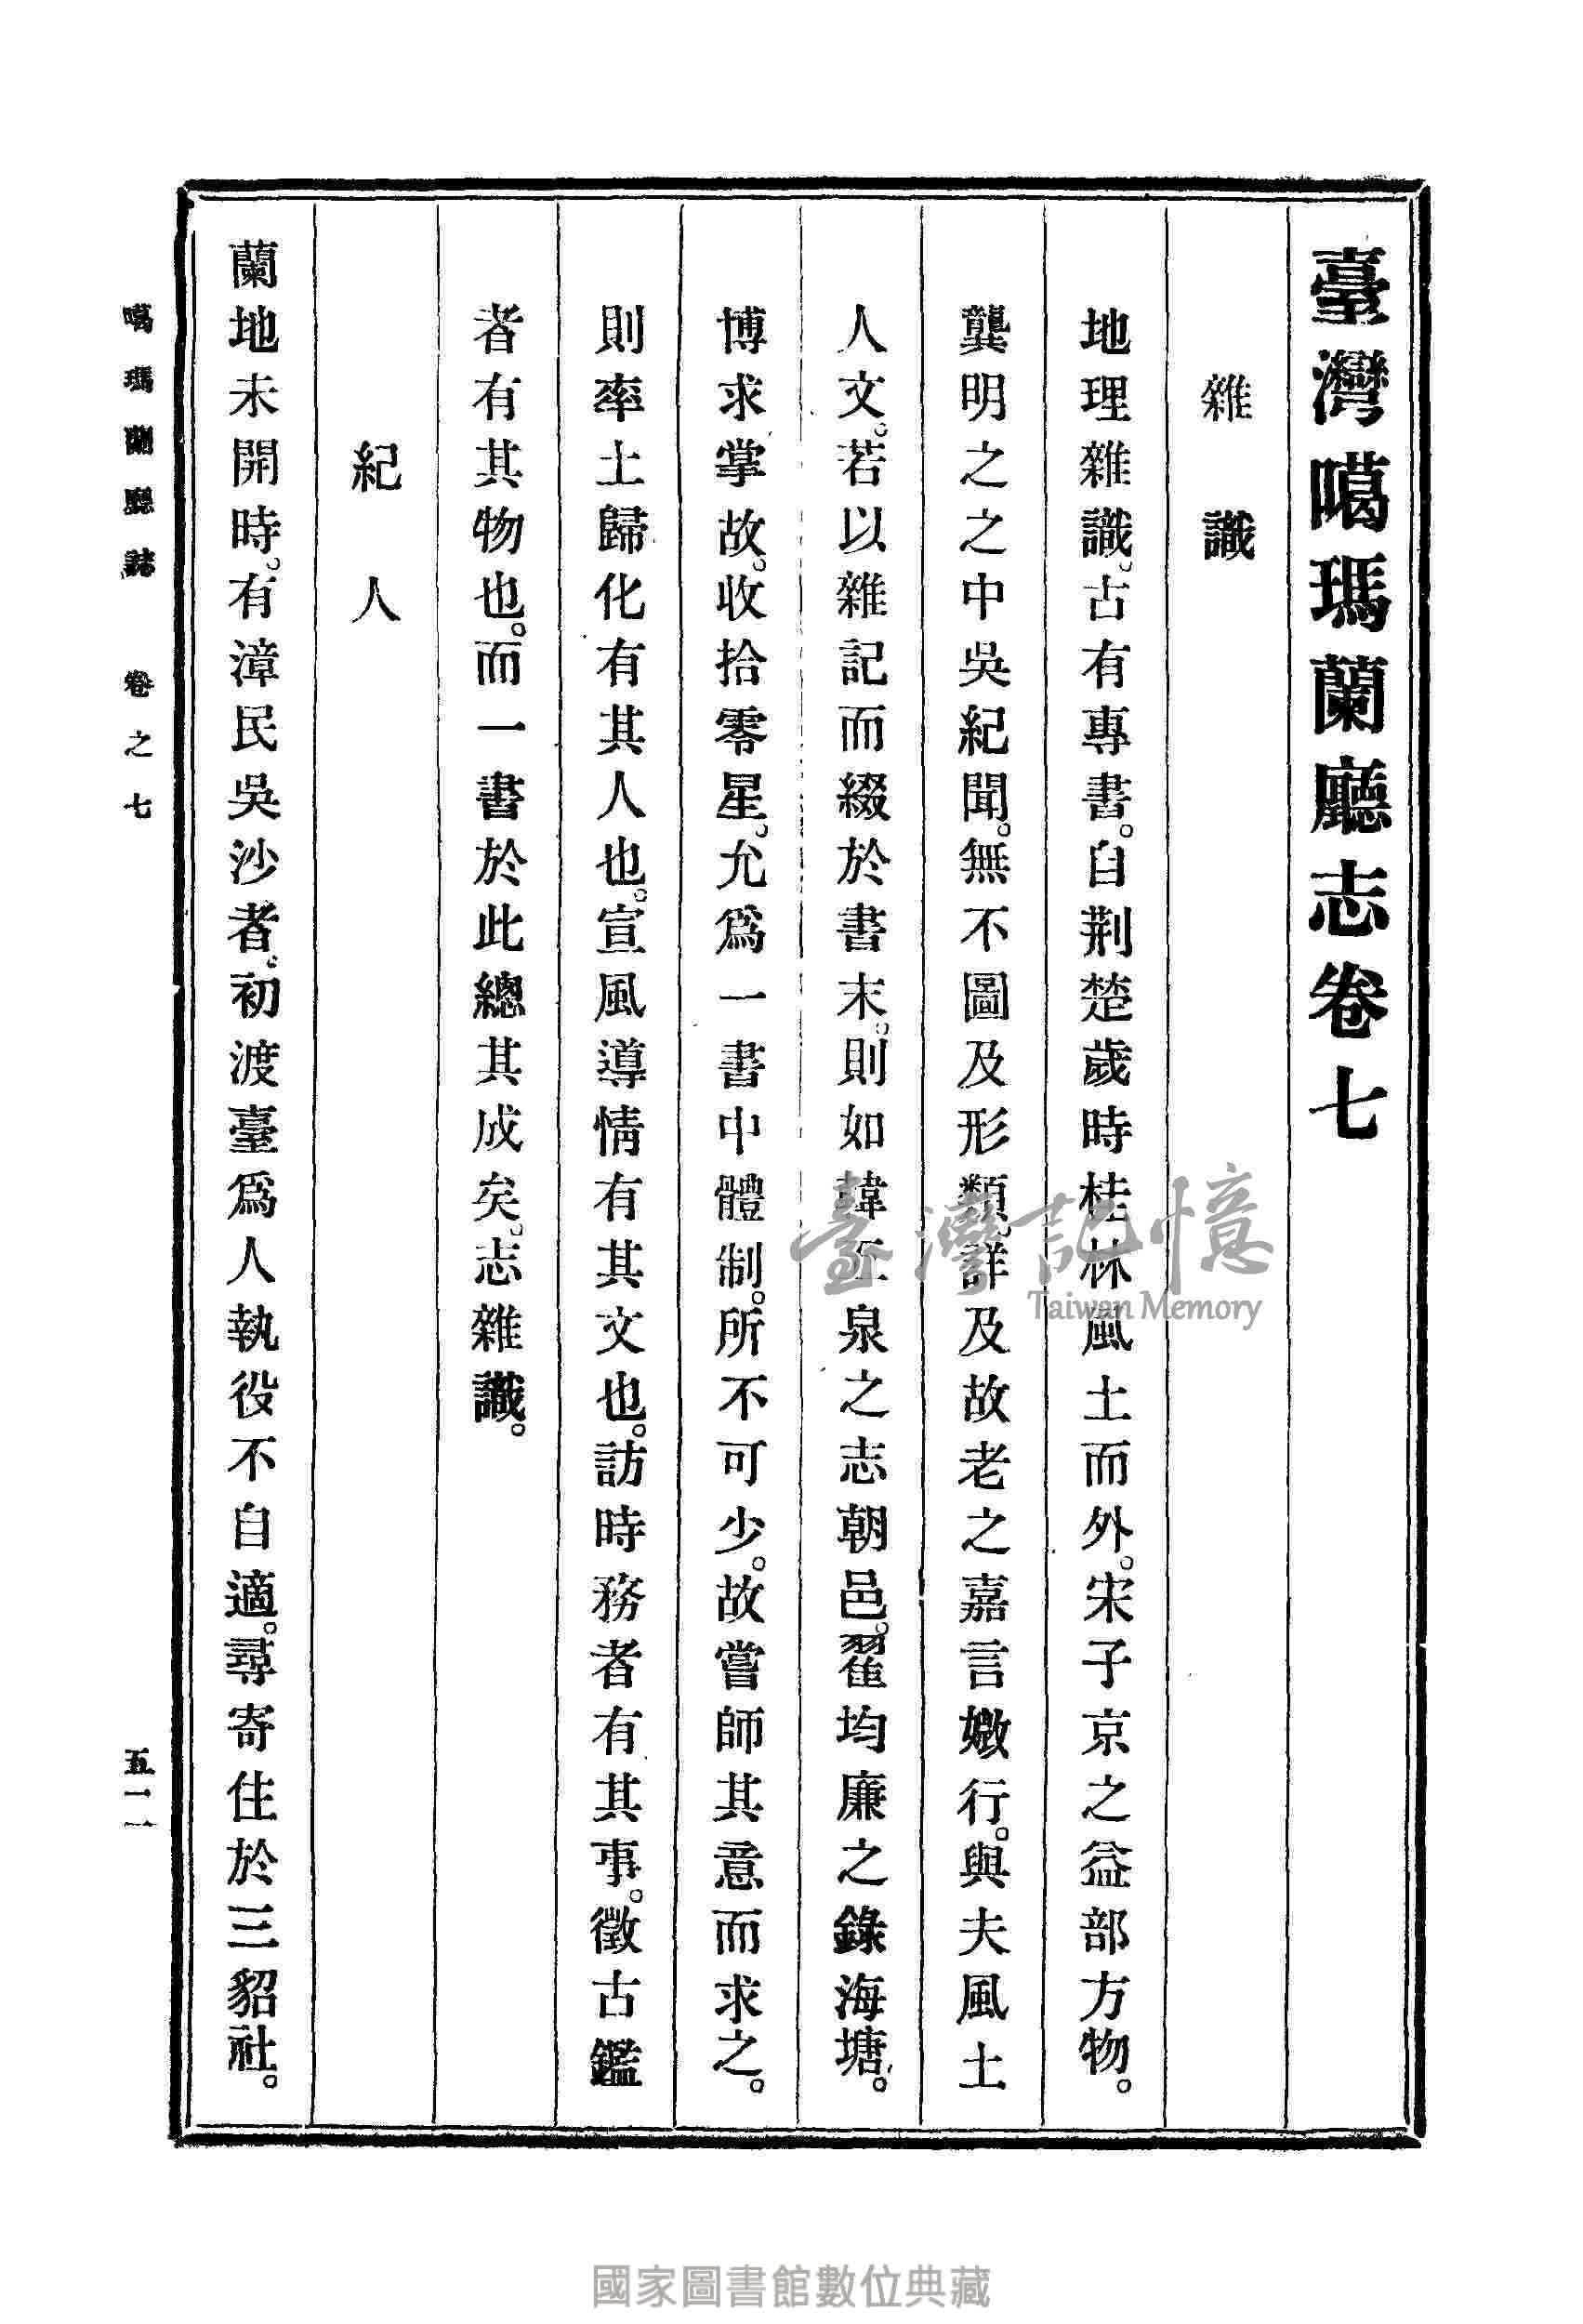 臺灣噶瑪蘭廳志卷七
雜識
地理雜識。古有專書。自荆楚歲時桂林風土而外。宋子京之益部方物。
龔明之之中吳紀聞。無不圖及形類。詳及故老之嘉言媺行。與夫風土
人文。若以雜記而綴於書末。則如韓五泉之志朝邑。翟均廉之錄海塘。
博求掌故。收拾零星。允爲一書中體制。所不可少。故嘗師其意而求之。
則率土歸化有其人也。宣風導情有其文也。訪時務者有其事。徵古鑑
者有其物也。而一書於此總其成矣。志雜識。
紀人
蘭地未開時。有漳民吳沙者。初渡臺爲人執役不自適。尋寄住於三貂社。
噶瑪蘭廳誌 卷之七 五一一
臺灣記憶
Taiwan Memory
國家圖書館數位典藏